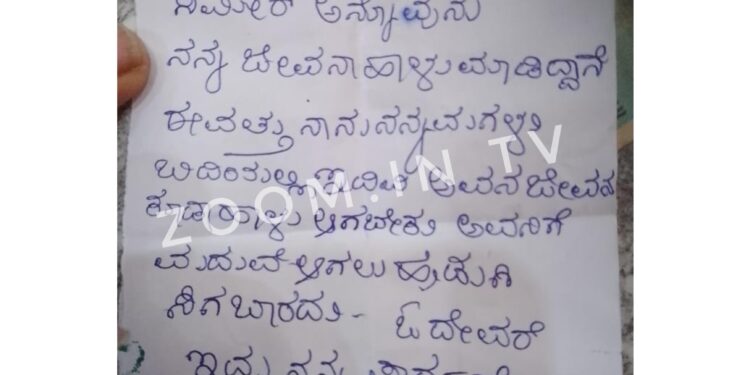 ಸಮೀರ್ ಅನ್ನುವುನು
ನನ್ನ ಜೀವನಾ ಹಾಳು ಮಾಡಿದ್ದಾನೆ
ಈವತ್ತು ನಾನು ನನ್ನ ಮಗಳು
ಬಿದಿಯಲ್ಲಿ ಇದಿವಿ ಅವನ ಜೀವನ
ಕೂಡಾ ಹಾಳು ಆಗಬೇಕು ಅವನಿಗೆ
ಮದುವೆ ಆಗಲು ಹುಡುಗಿ
ಸಿಗಬಾರದು - ಓ ದೇವರೆ
ಇದು ನನ್ನ
ZOOM.IN TV